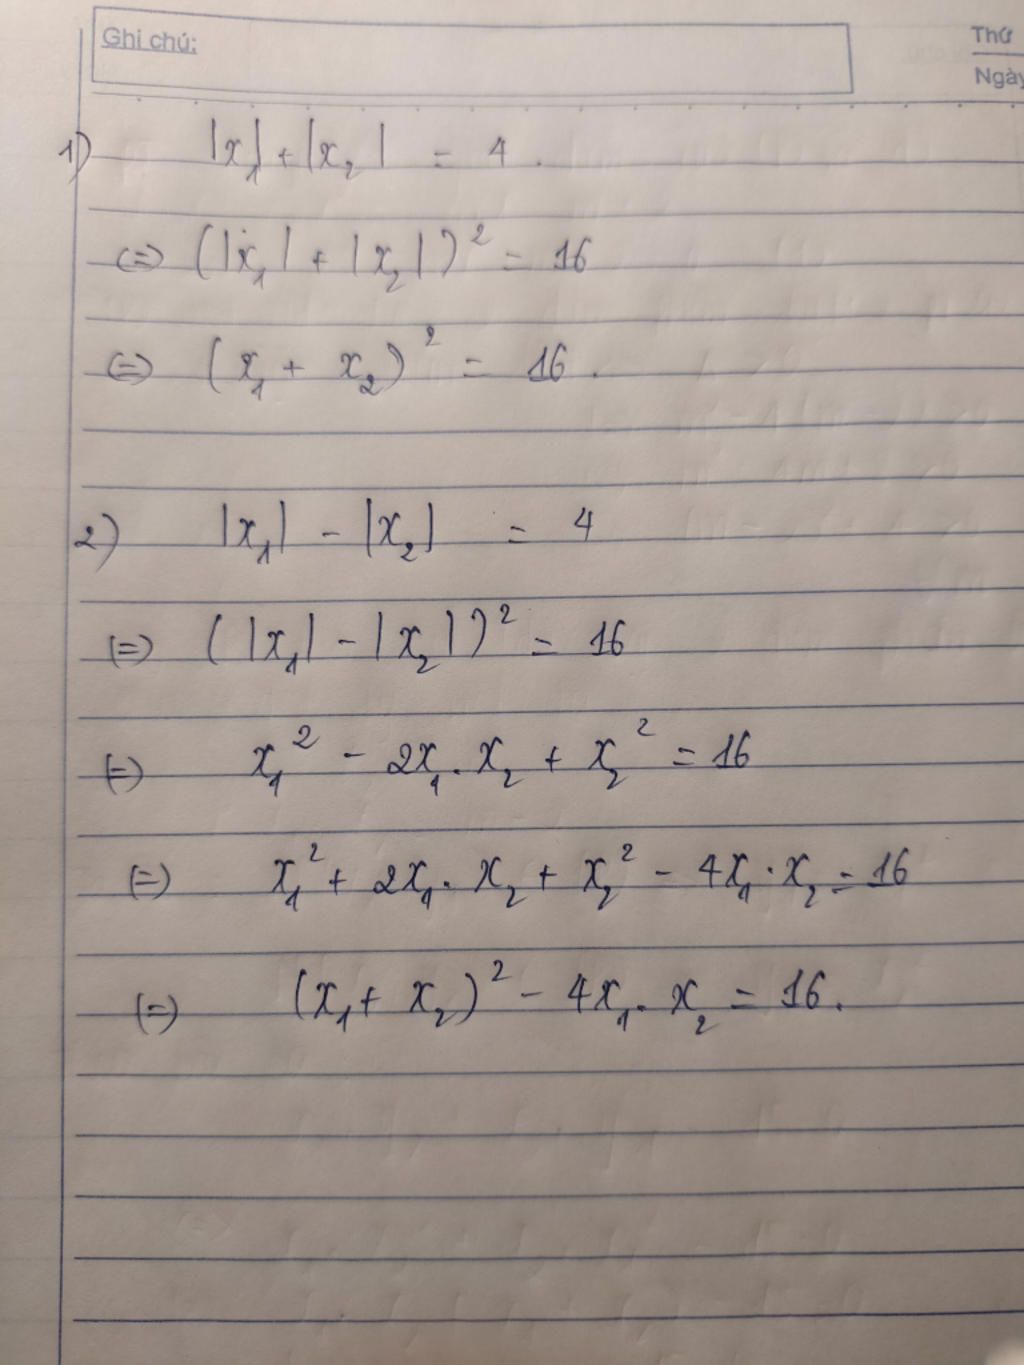 Ghi chú:
Thứ
Ngày
1) |x₁| + |x₂| = 4.
(=) (|x₁| + |x₂|)² = 16
(=) (x₁ + x₂)² = 16.
2) |x₁| - |x₂| = 4
(=) (|x₁| - |x₂|)² = 16
(=) x₁² - 2x₁.x₂ + x₂² = 16
(=) x₁² + 2x₁.x₂ + x₂² - 4x₁.x₂ = 16
(=) (x₁ + x₂)² - 4x₁.x₂ = 16.